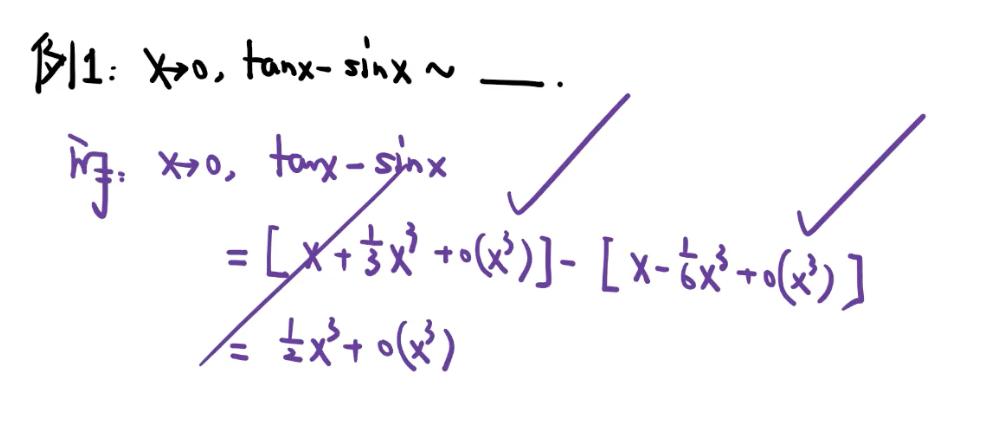 例1: x→0, tanx - sinx ~ ___.
解: x→0, tanx - sinx
= [x + 1/3 x³ + o(x³)] - [x - 1/6 x³ + o(x³)]
= 1/2 x³ + o(x³)